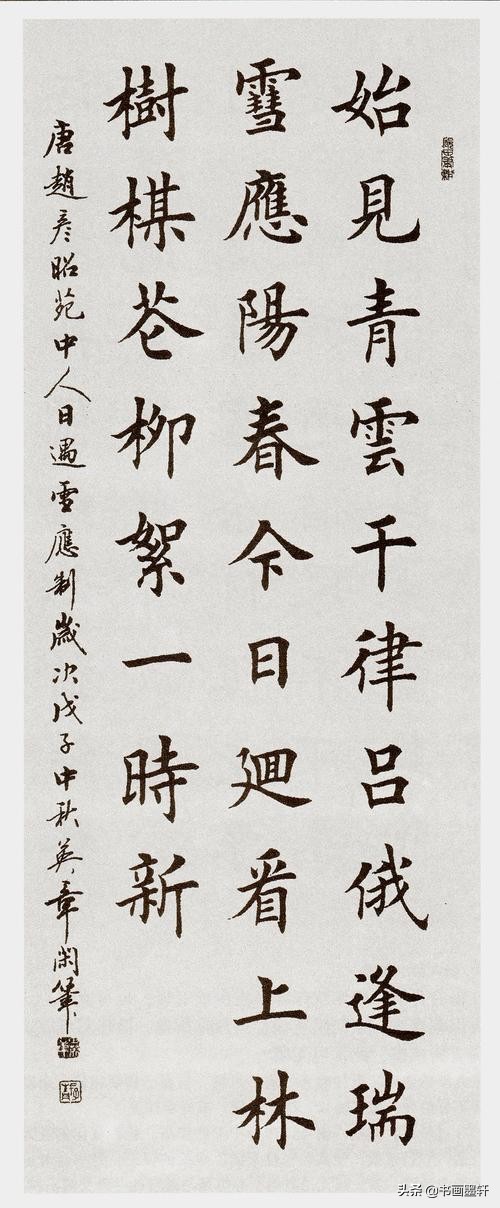 始見青雲千律呂俄逢瑞
雪應陽春今日廻看上林
樹楳花柳絮一時新
唐趙彥昭苑中人日遇雪應制歲次戊子中秋英章閑筆
头条 @书画墨轩